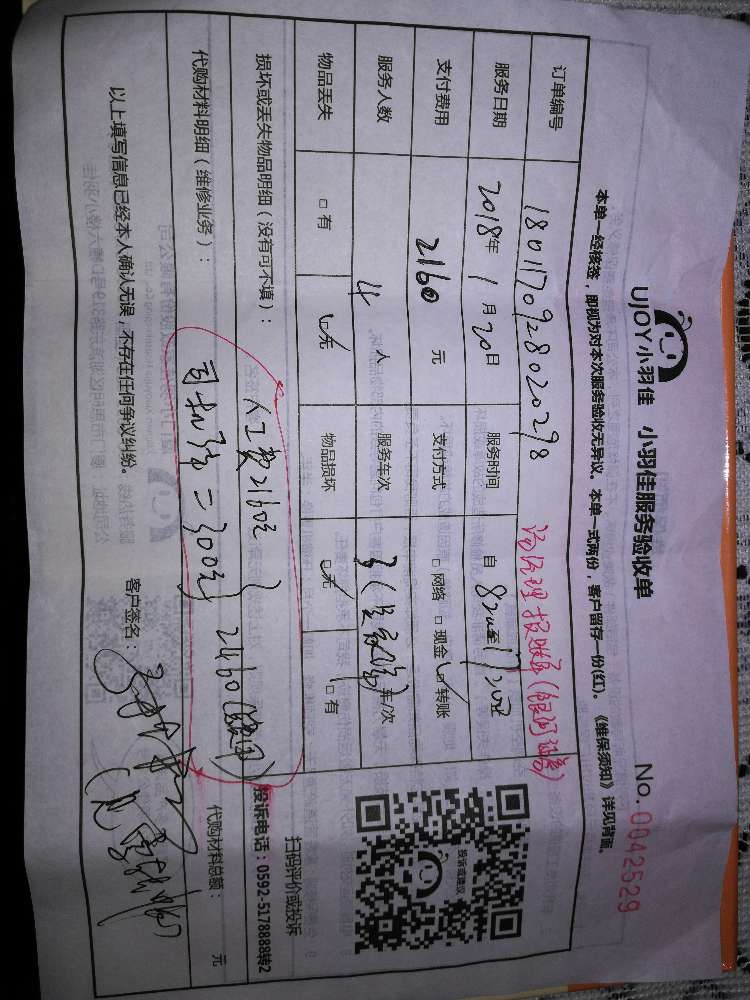 UJOY小羽佳 小羽佳服务验收单
No.0042529
本单一经核签，即视为对本次服务验收无异议。本单一式两份，客户留存一份(红)。《维保须知》详见背面。
订单编号 1801170928020298
服务日期 2018年1月20日 服务时间 自 8:00至17:00
支付费用 2160 元 支付方式 □网络 □现金 ☑转账
服务人数 4 人 服务车次 车/次
物品丢失 □有 ☑无 物品损坏 ☑无 □有
损坏或丢失物品明细（没有可不填）：
人工费2160元
代购材料明细（维修业务）：
=300元 2460
代购材料总额： 元
以上填写信息已经本人确认无误，不存在任何争议纠纷。
客户签名：
投诉或建议
扫码评价或投诉
投诉电话：0592-5178888转2